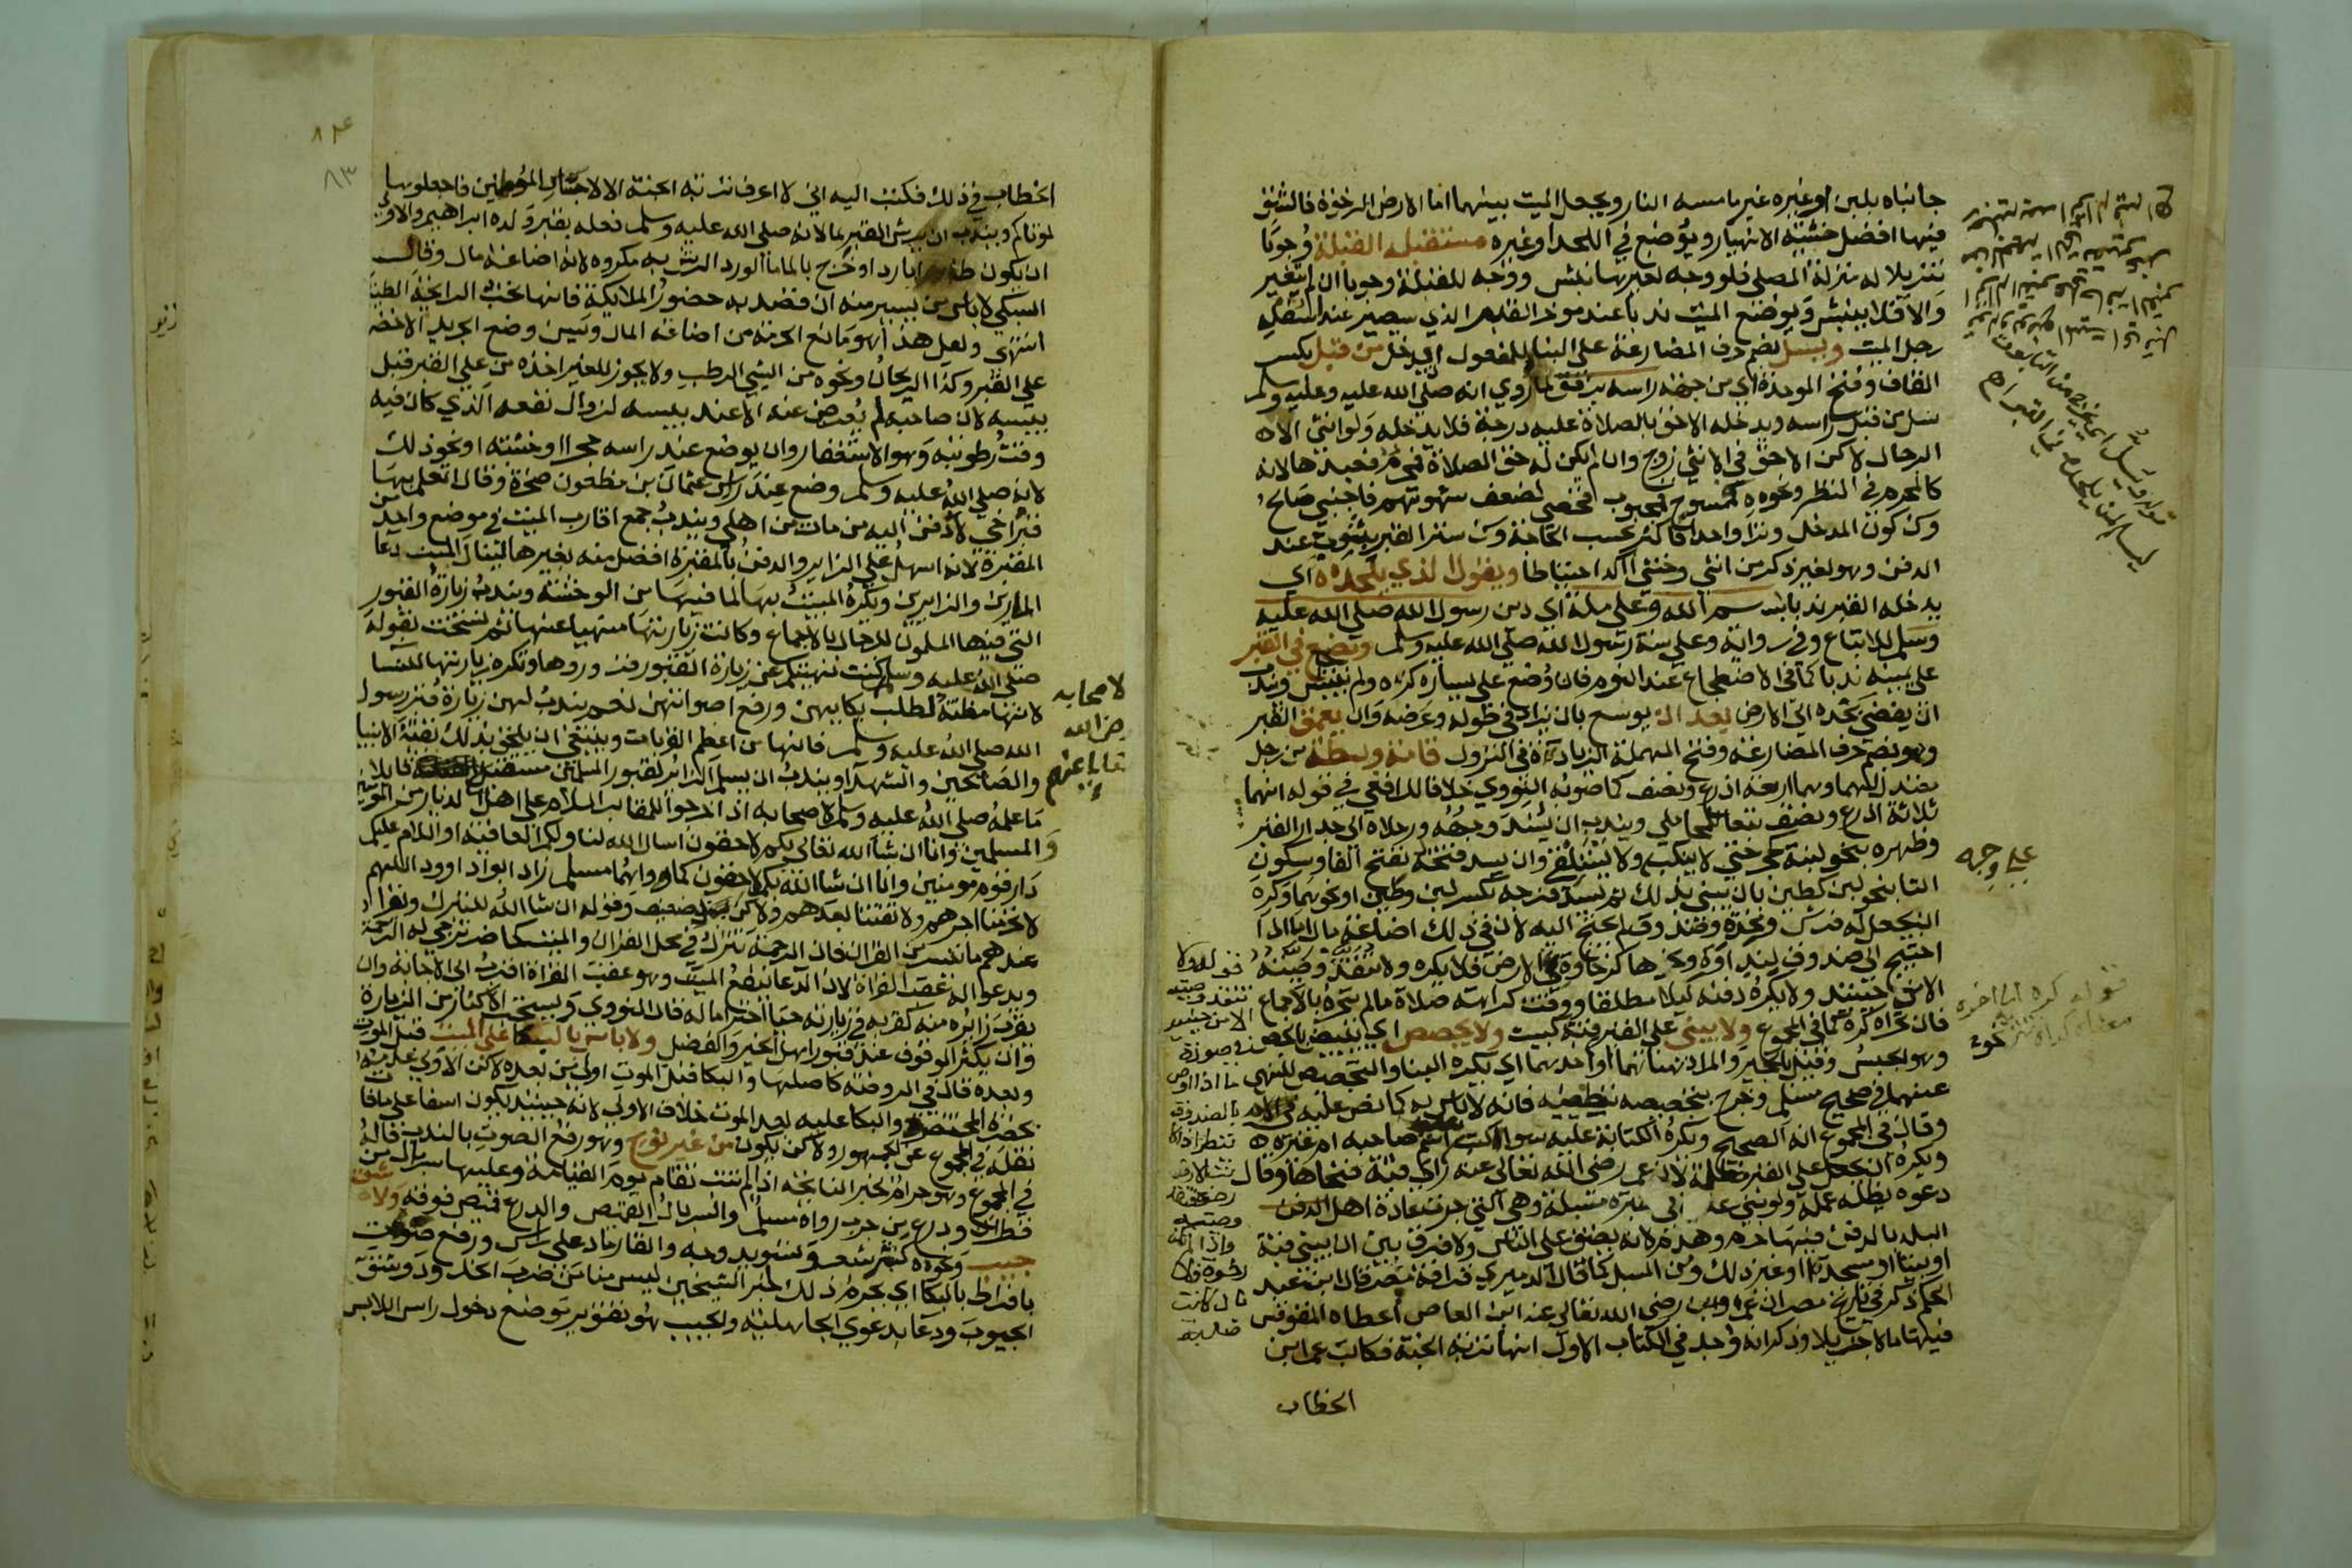 جانباه بلبن اوغيره غير ما مسه النار ويجعل الميت بينهما اما الارض الرخوة فالشق
فيها افضل خشية الانهيار ويوضع في اللحد اوغيره مستقبل القبلة وجوبا
تنزيلا له منزلة المصلي فلو وجه لغيرها نبش ووجه للقبلة وجوبا ان لم يتغير
والا فلا ينبش ويوضع الميت ندبا عند موخر القبر الذي سيصير عند اسفله
رجل الميت ويسل بضم حرف المضارعة على البنا للمفعول اي يدخل من قبل بكسر
القاف وفتح الموحدة اي من جهة راسه برفق لما روي انه صلى الله عليه وسلم
سل من قبل راسه ويدخله الاحق بالصلاة عليه درجة فلا يدخله ولو انثى الا
الرجال لاكن الاحق في الانثى زوج وان لم يكن له حق الصلاة فمحرم فعبدها لانه
كالمحرم في النظر ونحوه فممسوح فمجبوب فخصي لضعف شهوتهم فاجنبي صالح
وسن كون المدخل وترا واحدا فاكثر بحسب الحاجة وسن ستر القبر بثوب عند
الدفن وهو لغير ذكر من انثى وخنثى اكد احتياطا ويقول الذي يلحده اي
يدخله القبر ندبا بسم الله وعلى ملة اي دين رسول الله صلى الله عليه
وسلم للاتباع وفي رواية وعلى سنة رسول الله صلى الله عليه وسلم ويضع في القبر
على يمينه ندبا كما في الاضطجاع عند النوم فان وضع على يساره كره ولم ينبش وندب
ان يفضي بخده الى الارض بعد ان يوسع بان يزاد في طوله وعرضه وان يعمق القبر
وهو بضم حرف المضارعة وفتح المهملة الزيادة في النزول قامة وبسطة من رجل
معتدل لهما وهما اربعة اذرع ونصف كما صوبه النووي خلافا للرافعي في قوله انهما
ثلاثة اذرع ونصف تبعا للمحاملي ويندب ان يسند وجهه ورجلاه الى جدار القبر
وظهره بنحو لبنة كحجر حتى لا ينكب ولا يستلقي وان يسد فتحه بفتح الفا وسكون
التا بنحو لبن كطين بان يبنى بذلك ثم يسد فرجه بكسر لبن وطين او نحوهما وكره
ان يجعل له فرش ومخدة وصندوق لم يحتج اليه لان في ذلك اضاعة مال اما اذا
احتيج الى صندوق لنداوة ونحوها كرخاوة في الارض فلا يكره ولا تنفذ وصيته
الا حينئذ ولا يكره دفنه ليلا مطلقا ووقت كراهة صلاة مالم يتحره بالاجماع
فان تحراه كره كما في المجموع ولا يبنى على القبر قبة كبيت ولا يجصص اي يبيض بالجص
وهو الجبس وقيل الجير والمراد هنا هما او احدهما اي يكره البنا والتجصيص للنهي
عنهما في صحيح مسلم وخرج بتجصيصه تطيينه فانه لاباس به كما نص عليه في الام
وقال في المجموع انه الصحيح وتكره الكتابة عليه سوا كتب اسم صاحبه ام غيره
ويكره ان يجعل على القبر مظلة لان عمر رضي الله تعالى عنه راى قبة فنحاها وقال
دعوه يظله عمله ولو بني عليه في مقبرة مسبلة وهي التي جرت عادة اهل
البلد بالدفن فيها حرم وهدم لانه يضيق على الناس ولا فرق بين ان يبني قبة
او بيتا او مسجدا او غير ذلك ومن المسبل كما قال الدميري قرافة مصر قال ابن عبد
الحكم ذكر في تاريخ مصر ان عمرو بن رضي الله تعالى عنه ابن العاص اعطاه المقوقس
فيها مالا جزيلا وذكر انه وجد في الكتاب الاول انها تربة الجنة فكاتب عمر ابن
الخطاب
على وجهه
فلا
٨٤
٨٣
الخطاب في ذلك فكتب اليه اني لا اعرف تربة الجنة الا لاجساد المومنين فاجعلوها
لموتاكم ويندب ان يرش القبر بما لانه صلى الله عليه وسلم فعله بقبر ولده ابراهيم والاولى
ان يكون طهورا باردا وخرج بالما ما الورد الرش به مكروه لانه اضاعة مال وقال
السبكي لاباس بيسير منه ان قصد به حضور الملايكة فانها تحب الرايحة الطيبة
انتهى ولعل هذا هو مانع الحرمة من اضاعة المال وسن وضع الجريد الاخضر
على القبر وكذا الريحان ونحوه من الشي الرطب ولا يجوز للغير اخذه من على القبر قبل
يبسه لان صاحبه لم يعرض عنه الا عند يبسه لزوال نفعه الذي كان فيه
وقت رطوبته وهو الاستغفار وان يوضع عند راسه حجرا او خشبة او نحو ذلك
لانه صلى الله عليه وسلم وضع عند راس عثمان بن مظعون صخرة وقال اتعلم بها
قبر اخي لادفن اليه من مات من اهلي ويندب جمع اقارب الميت في موضع واحد من
المقبرة لانه اسهل على الزاير والدفن بالمقبرة افضل منه بغيرها لينال الميت دعا
المارين والزايرين ويكره المبيت بها لما فيها من الوحشة ويندب زيارة القبور
التي فيها المسلمون للرجال بالاجماع وكانت زيارتها منهيا عنها ثم نسخت بقوله
صلى الله عليه وسلم كنت نهيتكم عن زيارة القبور فزوروها وتكره زيارتها للنسا
لانها مظنة لطلب بكايهن ورفع اصواتهن نعم يندب لهن زيارة قبر رسول
الله صلى الله عليه وسلم فانها من اعظم القربات وينبغي ان يلحق بذلك بقية الانبيا
والصالحين والشهدا ويندب ان يسلم الزاير لقبور المسلمين مستقبلا قايلا
ما علمه صلى الله عليه وسلم لاصحابه اذا خرجوا للمقابر السلام على اهل الديار من المومنين
والمسلمين وانا ان شا الله تعالى بكم لاحقون اسال الله لنا ولكم العافية او السلام عليكم
دار قوم مومنين وانا ان شا الله بكم لاحقون كما رواهما مسلم زاد ابو داوود اللهم
لا تحرمنا اجرهم ولا تفتنا بعدهم ولاكن بسند ضعيف وقوله ان شا الله للتبرك ويقرا
عندهم ما تيسر من القران فان الرحمة تنزل في محل القران والميت كحاضر ترجى له الرحمة
ويدعوا له عقب القراة لان الدعا ينفع الميت وهو عقب القراة اقرب الى الاجابة وان
يقرب زايره منه كقربه في زيارته حيا احتراما له قال النووي ويستحب الاكثار من الزيارة
وان يكثر الوقوف عند قبور اهل الخير والفضل ولاباس بالبكا على الميت قبل الموت
وبعده قال في الروضة كاصلها والبكا قبل الموت اولى من بعده لاكن الاولى عدمه
بحضرة المحتضر والبكا عليه بعد الموت خلاف الاولى لانه حينئذ يكون اسفا على ما فات
نقله في المجموع عن الجمهور ولاكن يكون من غير نوح وهو رفع الصوت بالندب قاله
في المجموع وهو حرام لخبر النايحة اذا لم تتب تقام يوم القيامة وعليها سربال من
قطران ودرع من جرب رواه مسلم والسربال القميص والدرع قميص فوقه ولا شق
جيب ونحوه كنشر شعر وتسويد وجه والقا رماد على راس ورفع صوت
بافراط بالبكا اي يحرم ذلك لخبر الشيخين ليس منا من ضرب الخدود وشق
الجيوب ودعا بدعوى الجاهلية والجيب هو تقوير موضع دخول راس اللابس
لاصحابه
رضي الله
تعالى عنهم